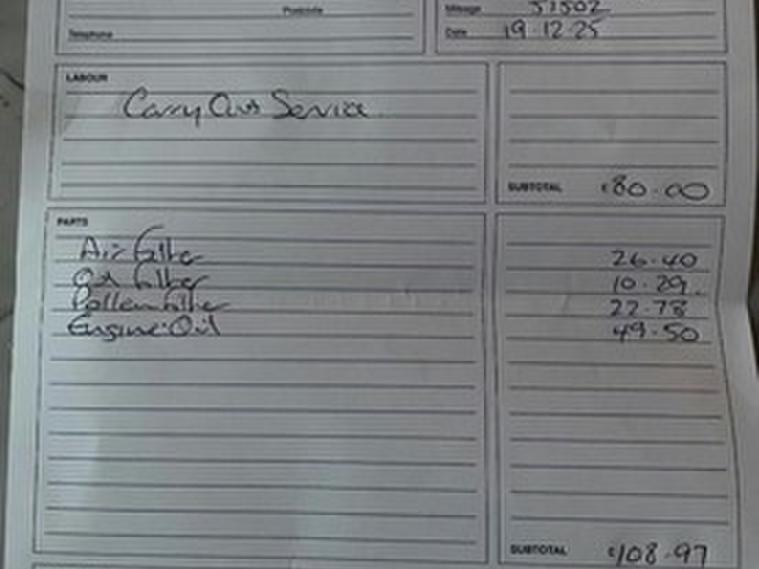 Postcode
Mileage 51502
Telephone
Date 19.12.25
LABOUR
Carry Out Service
SUBTOTAL £80.00
PARTS
Air filter 26.40
Oil filter 10.29
Pollen filter 22.78
Engine Oil 49.50
SUBTOTAL £108.97